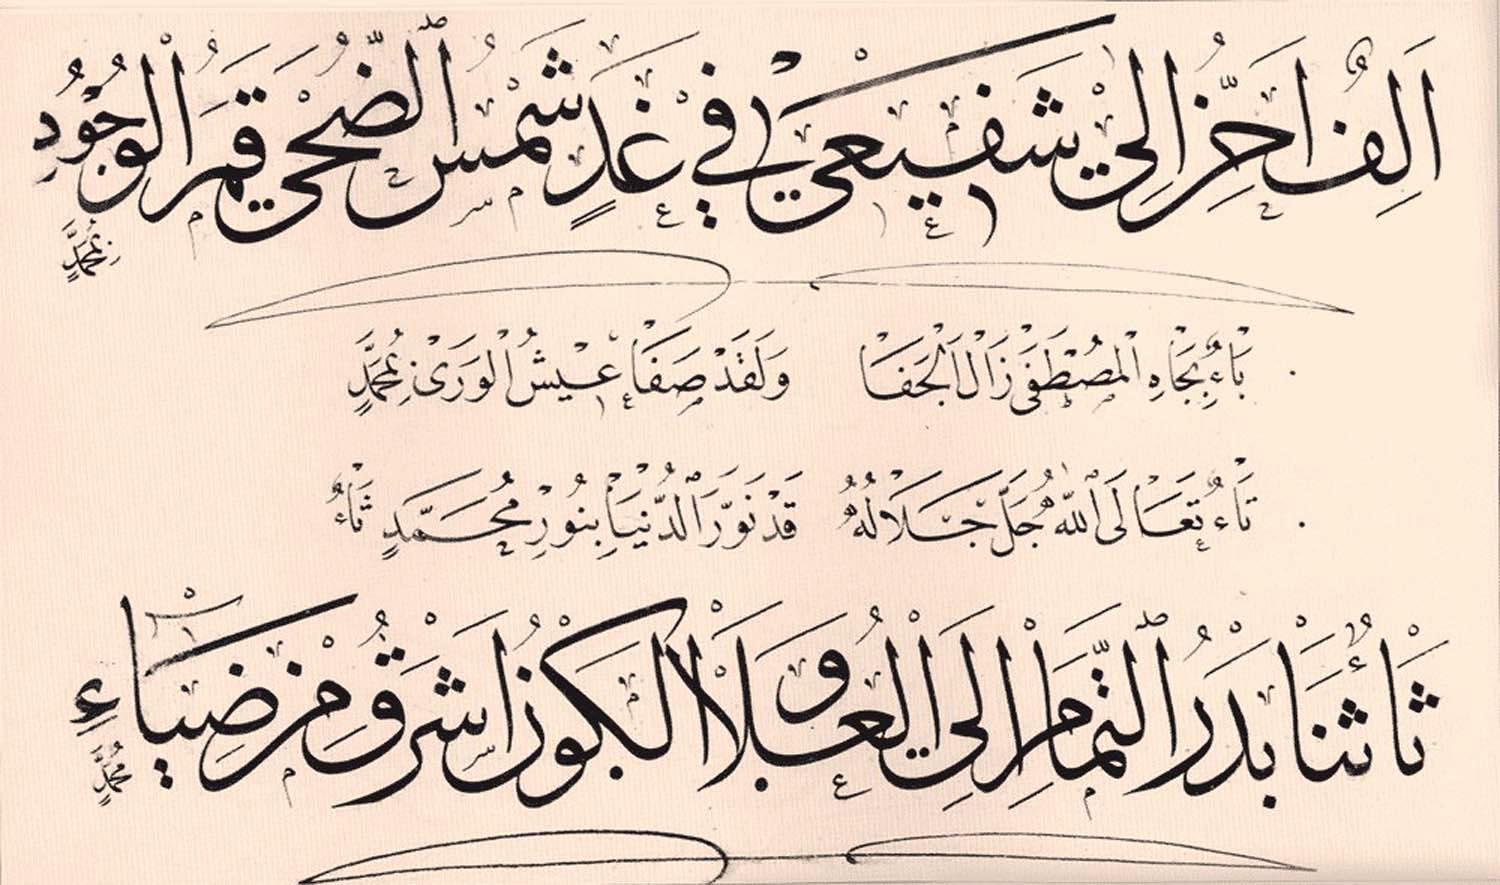 اَلِفٌ اَحِنُّ اِلىٰ شَفِيعي في غَدٍ شَمْسُ الضُّحىٰ قَمَرُ الْوُجُودِ
مُحَمَّدٍ
بَاءٌ بِجَاهِ الْمُصْطَفىٰ زَالَ الْجَفَا وَلَقَدْ صَفَا عَيْشُ الْوَرىٰ بِمُحَمَّدٍ
تَاءٌ تَعَالَى اللهُ جَلَّ جَلَالُهُ قَدْ نَوَّرَ الدُّنْيَا بِنُورِ مُحَمَّدٍ ثَاءٌ
ثَاءٌ ثَنَا بَدْرُ التَّمَامِ اِلَى الْعُلَا وَالْكَوْنُ اَشْرَقَ مِنْ ضِيَاءِ
مُحَمَّدٍ